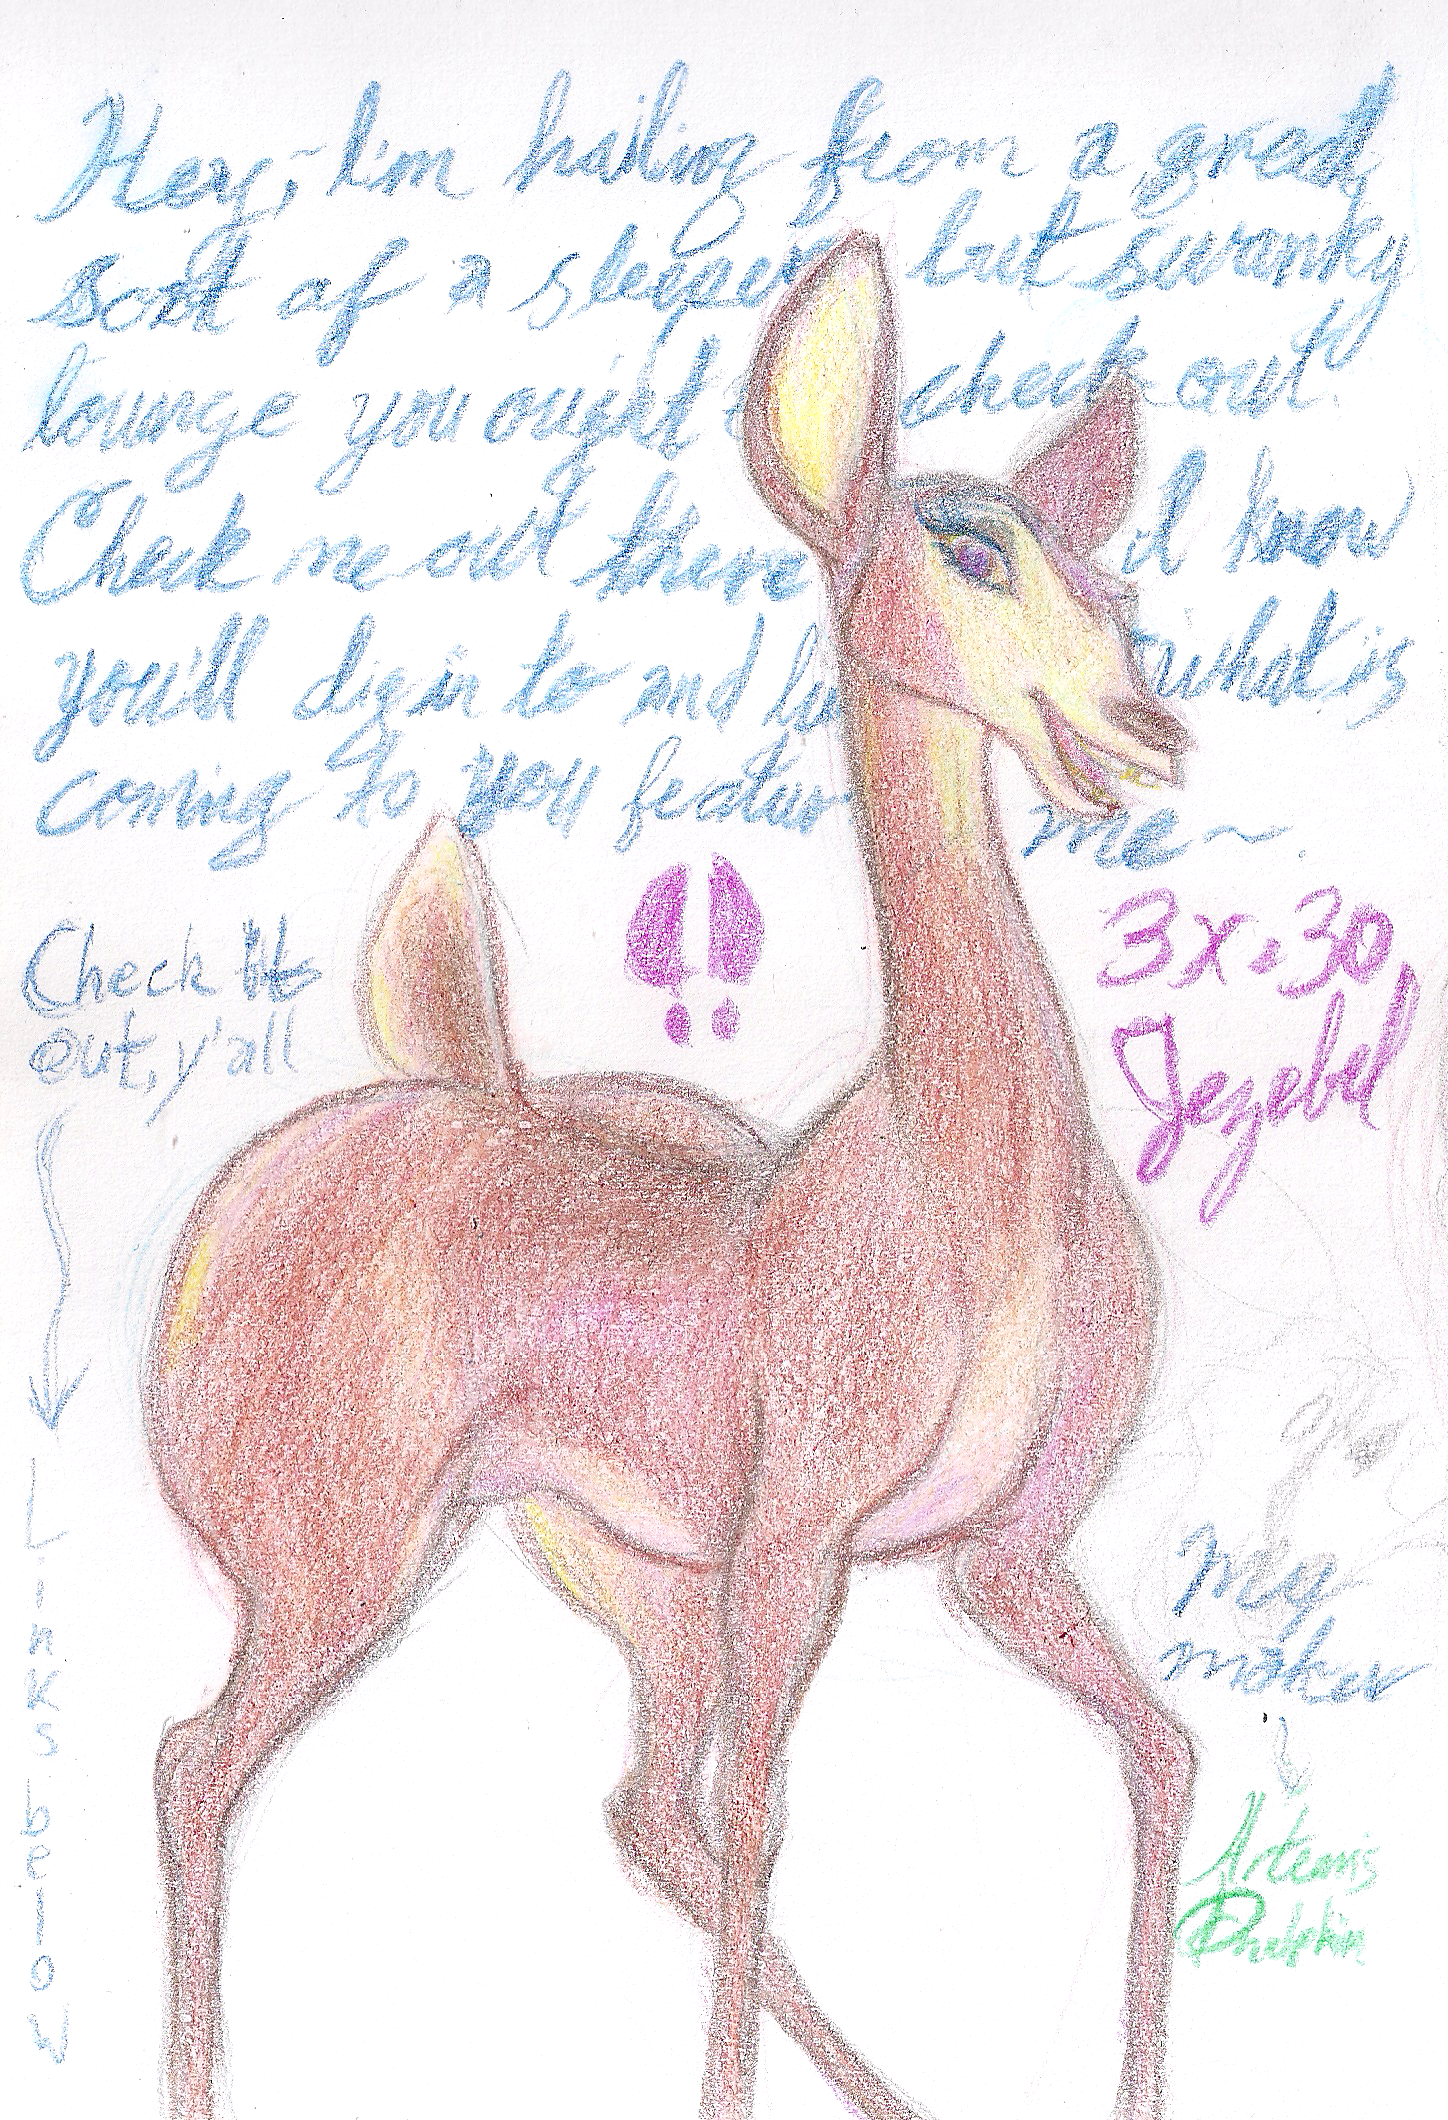 Hey, I'm hailing from a great
sort of a sleeper but swanky
lounge you ought check out.
Check me out there I'd know
you'll dig in to and what is
coming to you featurin me~.
Check it
out, y'all
3x.30,
Jezebel
Links below
my
maker
Artemis